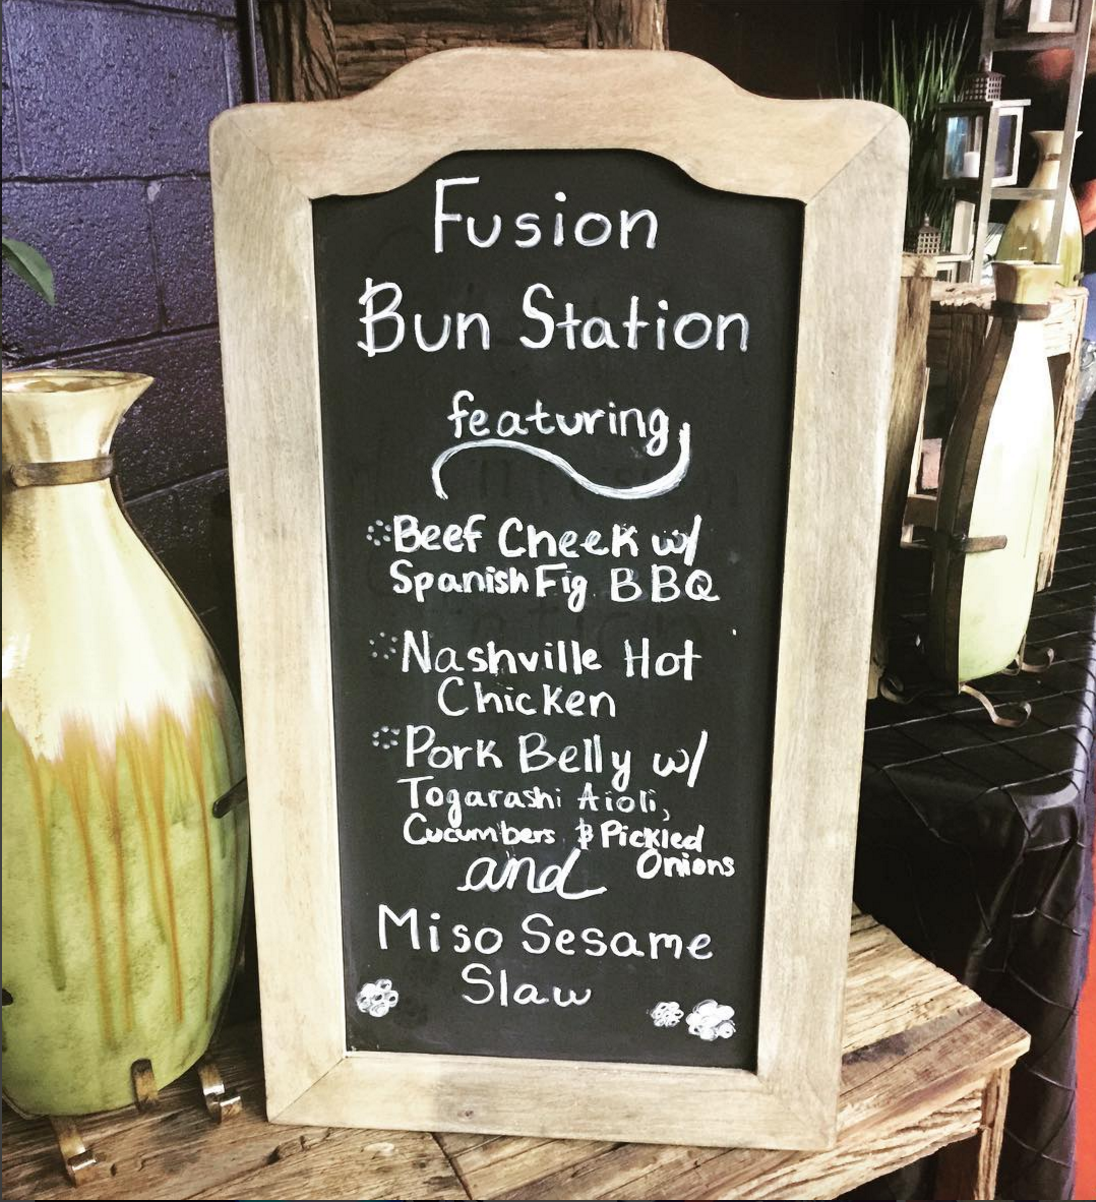 Fusion
Bun Station
featuring
Beef Cheek w/
Spanish Fig BBQ
Nashville Hot
Chicken
Pork Belly w/
Togarashi Aioli,
Cucumbers & Pickled
Onions
and
Miso Sesame
Slaw